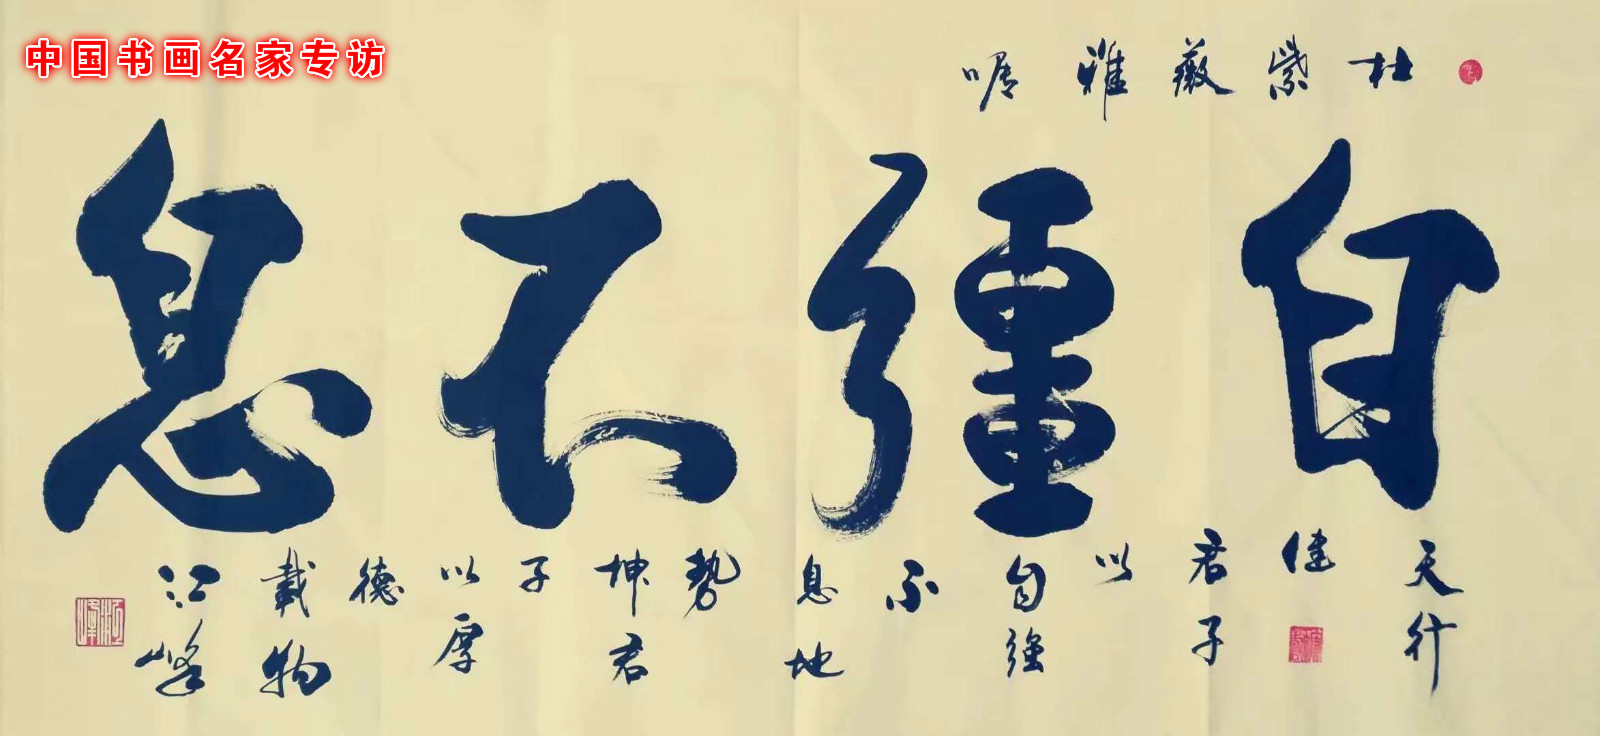 中国书画名家专访
杜紫薇雅嘱
自彊不息
天行
健
君子
以
自強
不
息地
勢
坤君
子
以厚
德
載物
江峰